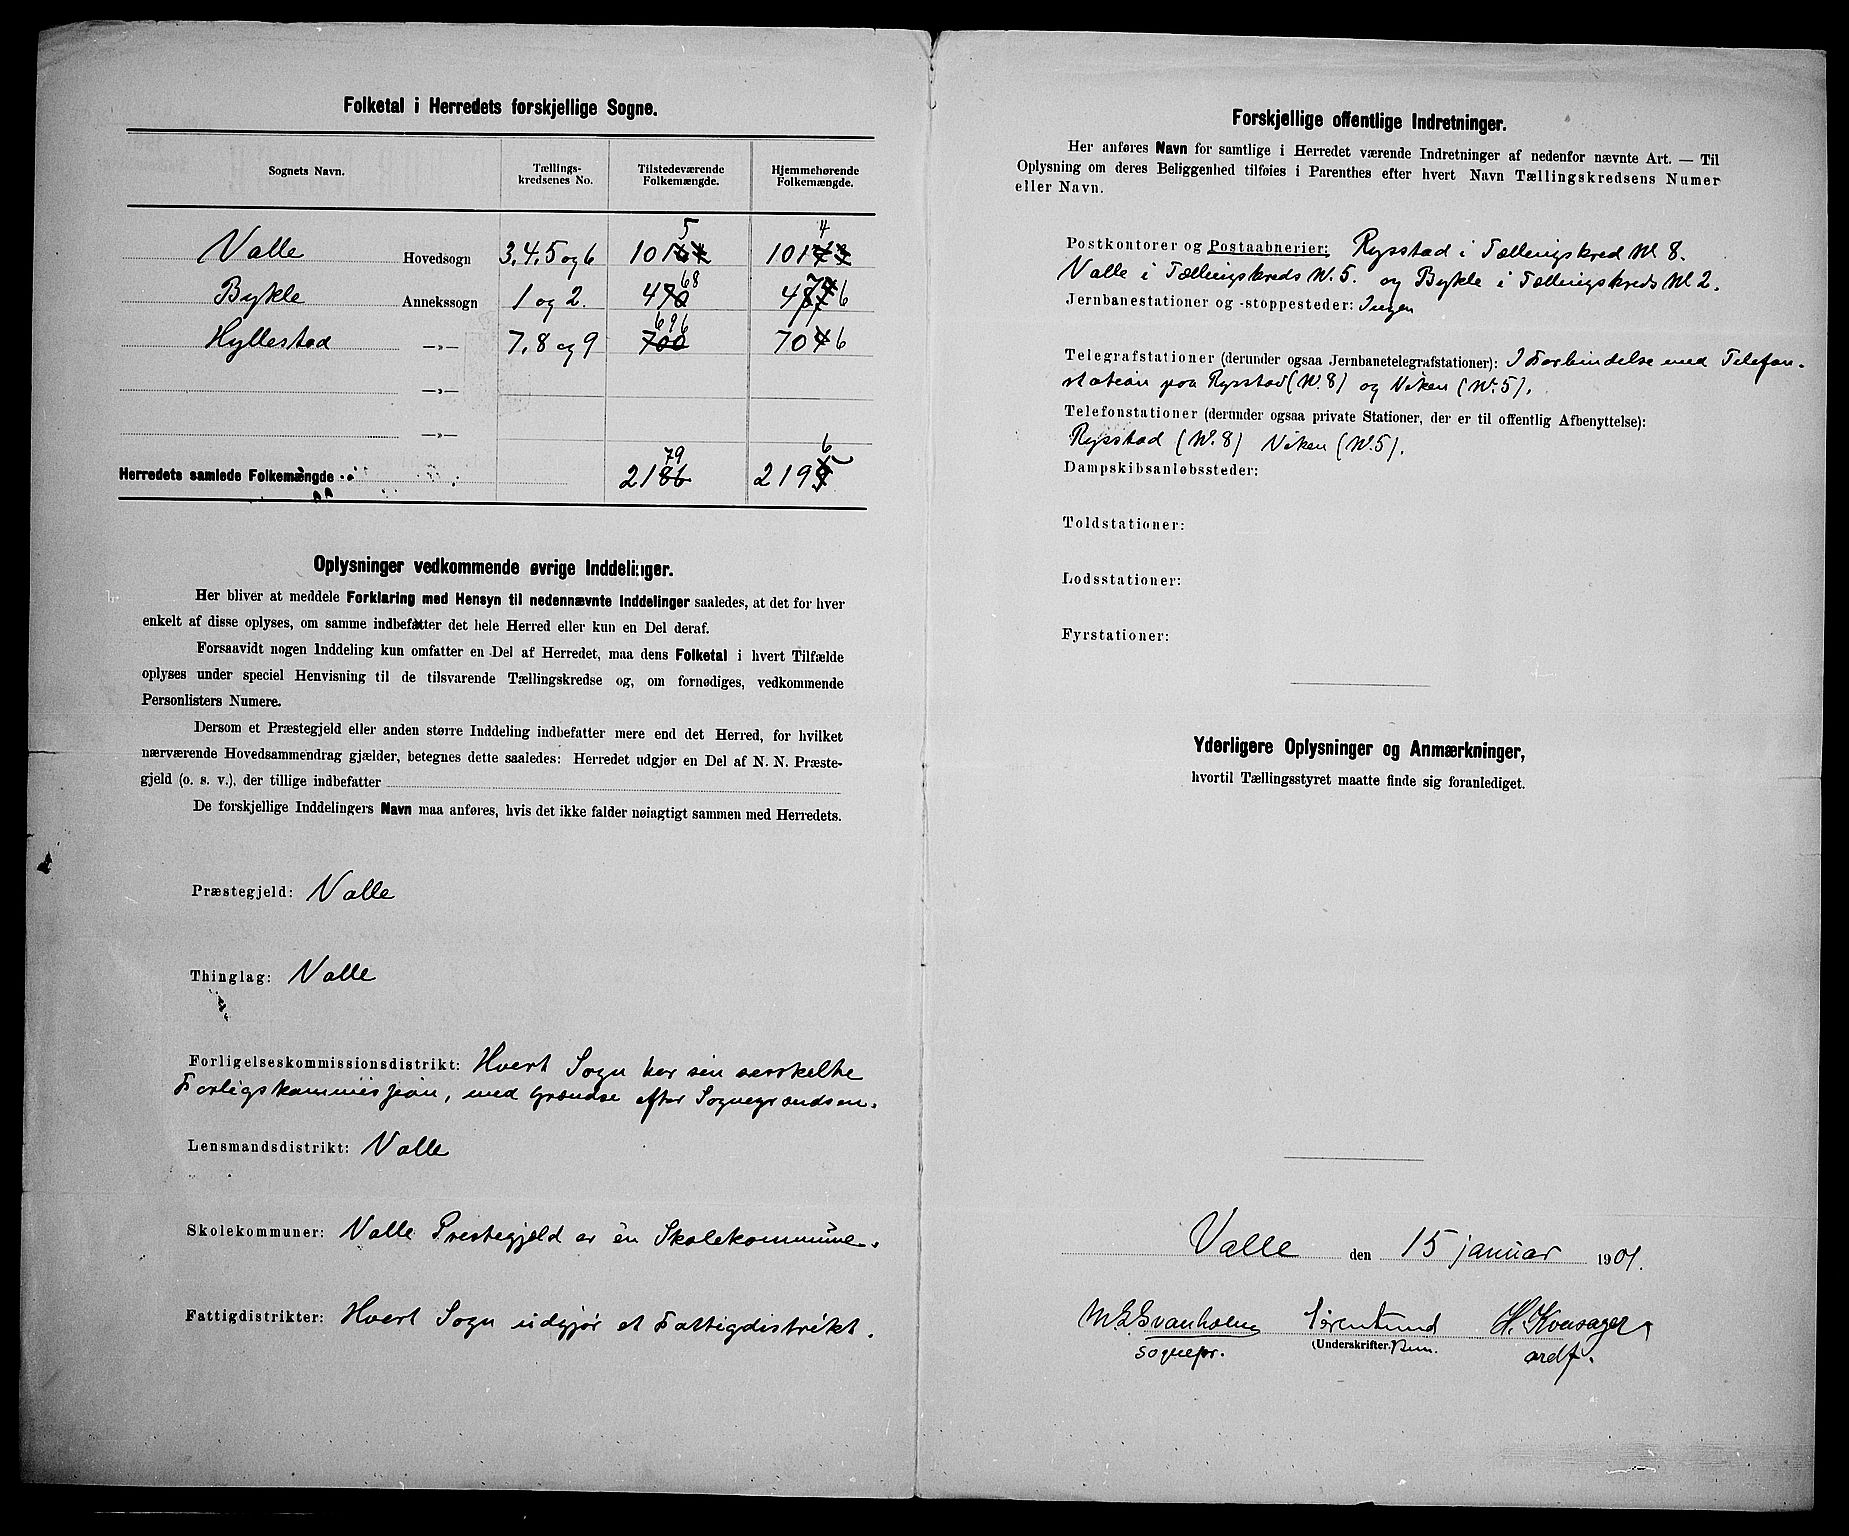 Folketal i Herredets forskjellige Sogne.
Sognets Navn. Tællings-kredsenes No. Tilstedeværende Folkemængde. Hjemmehørende Folkemængde.
5 4
Valle Hovedsogn 3.4.5 og 6 101 101
68
Bykle Annekssogn 1 og 2. 470 6
696
Hyllestad —„— 7.8 og 9 700 704 6
—„—
—„—
79 6
Herredets samlede Folkemængde 2186 2195
Oplysninger vedkommende øvrige Inddelinger.
Her bliver at meddele Forklaring med Hensyn til nedennævnte Inddelinger saaledes, at det for hver
enkelt af disse oplyses, om samme indbefatter det hele Herred eller kun en Del deraf.
Forsaavidt nogen Inddeling kun omfatter en Del af Herredet, maa dens Folketal i hvert Tilfælde
oplyses under speciel Henvisning til de tilsvarende Tællingskredse og, om fornødiges, vedkommende
Personlisters Numere.
Dersom et Præstegjeld eller anden større Inddeling indbefatter mere end det Herred, for hvilket
nærværende Hovedsammendrag gjælder, betegnes dette saaledes: Herredet udgjør en Del af N. N. Præste-
gjeld (o. s. v.), der tillige indbefatter
De forskjellige Inddelingers Navn maa anføres, hvis det ikke falder nøiagtigt sammen med Herredets.
Præstegjeld: Valle
Thinglag: Valle
Forligelseskommissionsdistrikt: Hvert Sogn har sin serskelte
Forligskommissjion, med Grændse efter Sognegrændsen.
Lensmandsdistrikt: Valle
Skolekommuner: Valle Prestegjeld er én Skolekommune.
Fattigdistrikter: Hvert Sogn udgjør et Fattigdistrikt.
Forskjellige offentlige Indretninger.
Her anføres Navn for samtlige i Herredet værende Indretninger af nedenfor nævnte Art. — Til
Oplysning om deres Beliggenhed tilføies i Parenthes efter hvert Navn Tællingskredsens Numer
eller Navn.
Postkontorer og Postaabnerier: Rysstad i Tællingskred No. 8.
Valle i Tællingskreds No. 5. og Bykle i Tællingskreds No 2.
Jernbanestationer og -stoppesteder: Ingen
Telegrafstationer (derunder ogsaa Jernbanetelegrafstationer): I Forbindelse med Telefon-
station paa Rysstad (No. 8) og Viken (No. 5).
Telefonstationer (derunder ogsaa private Stationer, der er til offentlig Afbenyttelse):
Rysstad (No. 8) Viken (No. 5).
Dampskibsanløbssteder:
Toldstationer:
Lodsstationer:
Fyrstationer:
Yderligere Oplysninger og Anmærkninger,
hvortil Tællingsstyret maatte finde sig foranlediget.
Valle den 15 januar 1901.
Svanholm H. Kvasager
sognepr. (Underskrifter.) ordf.